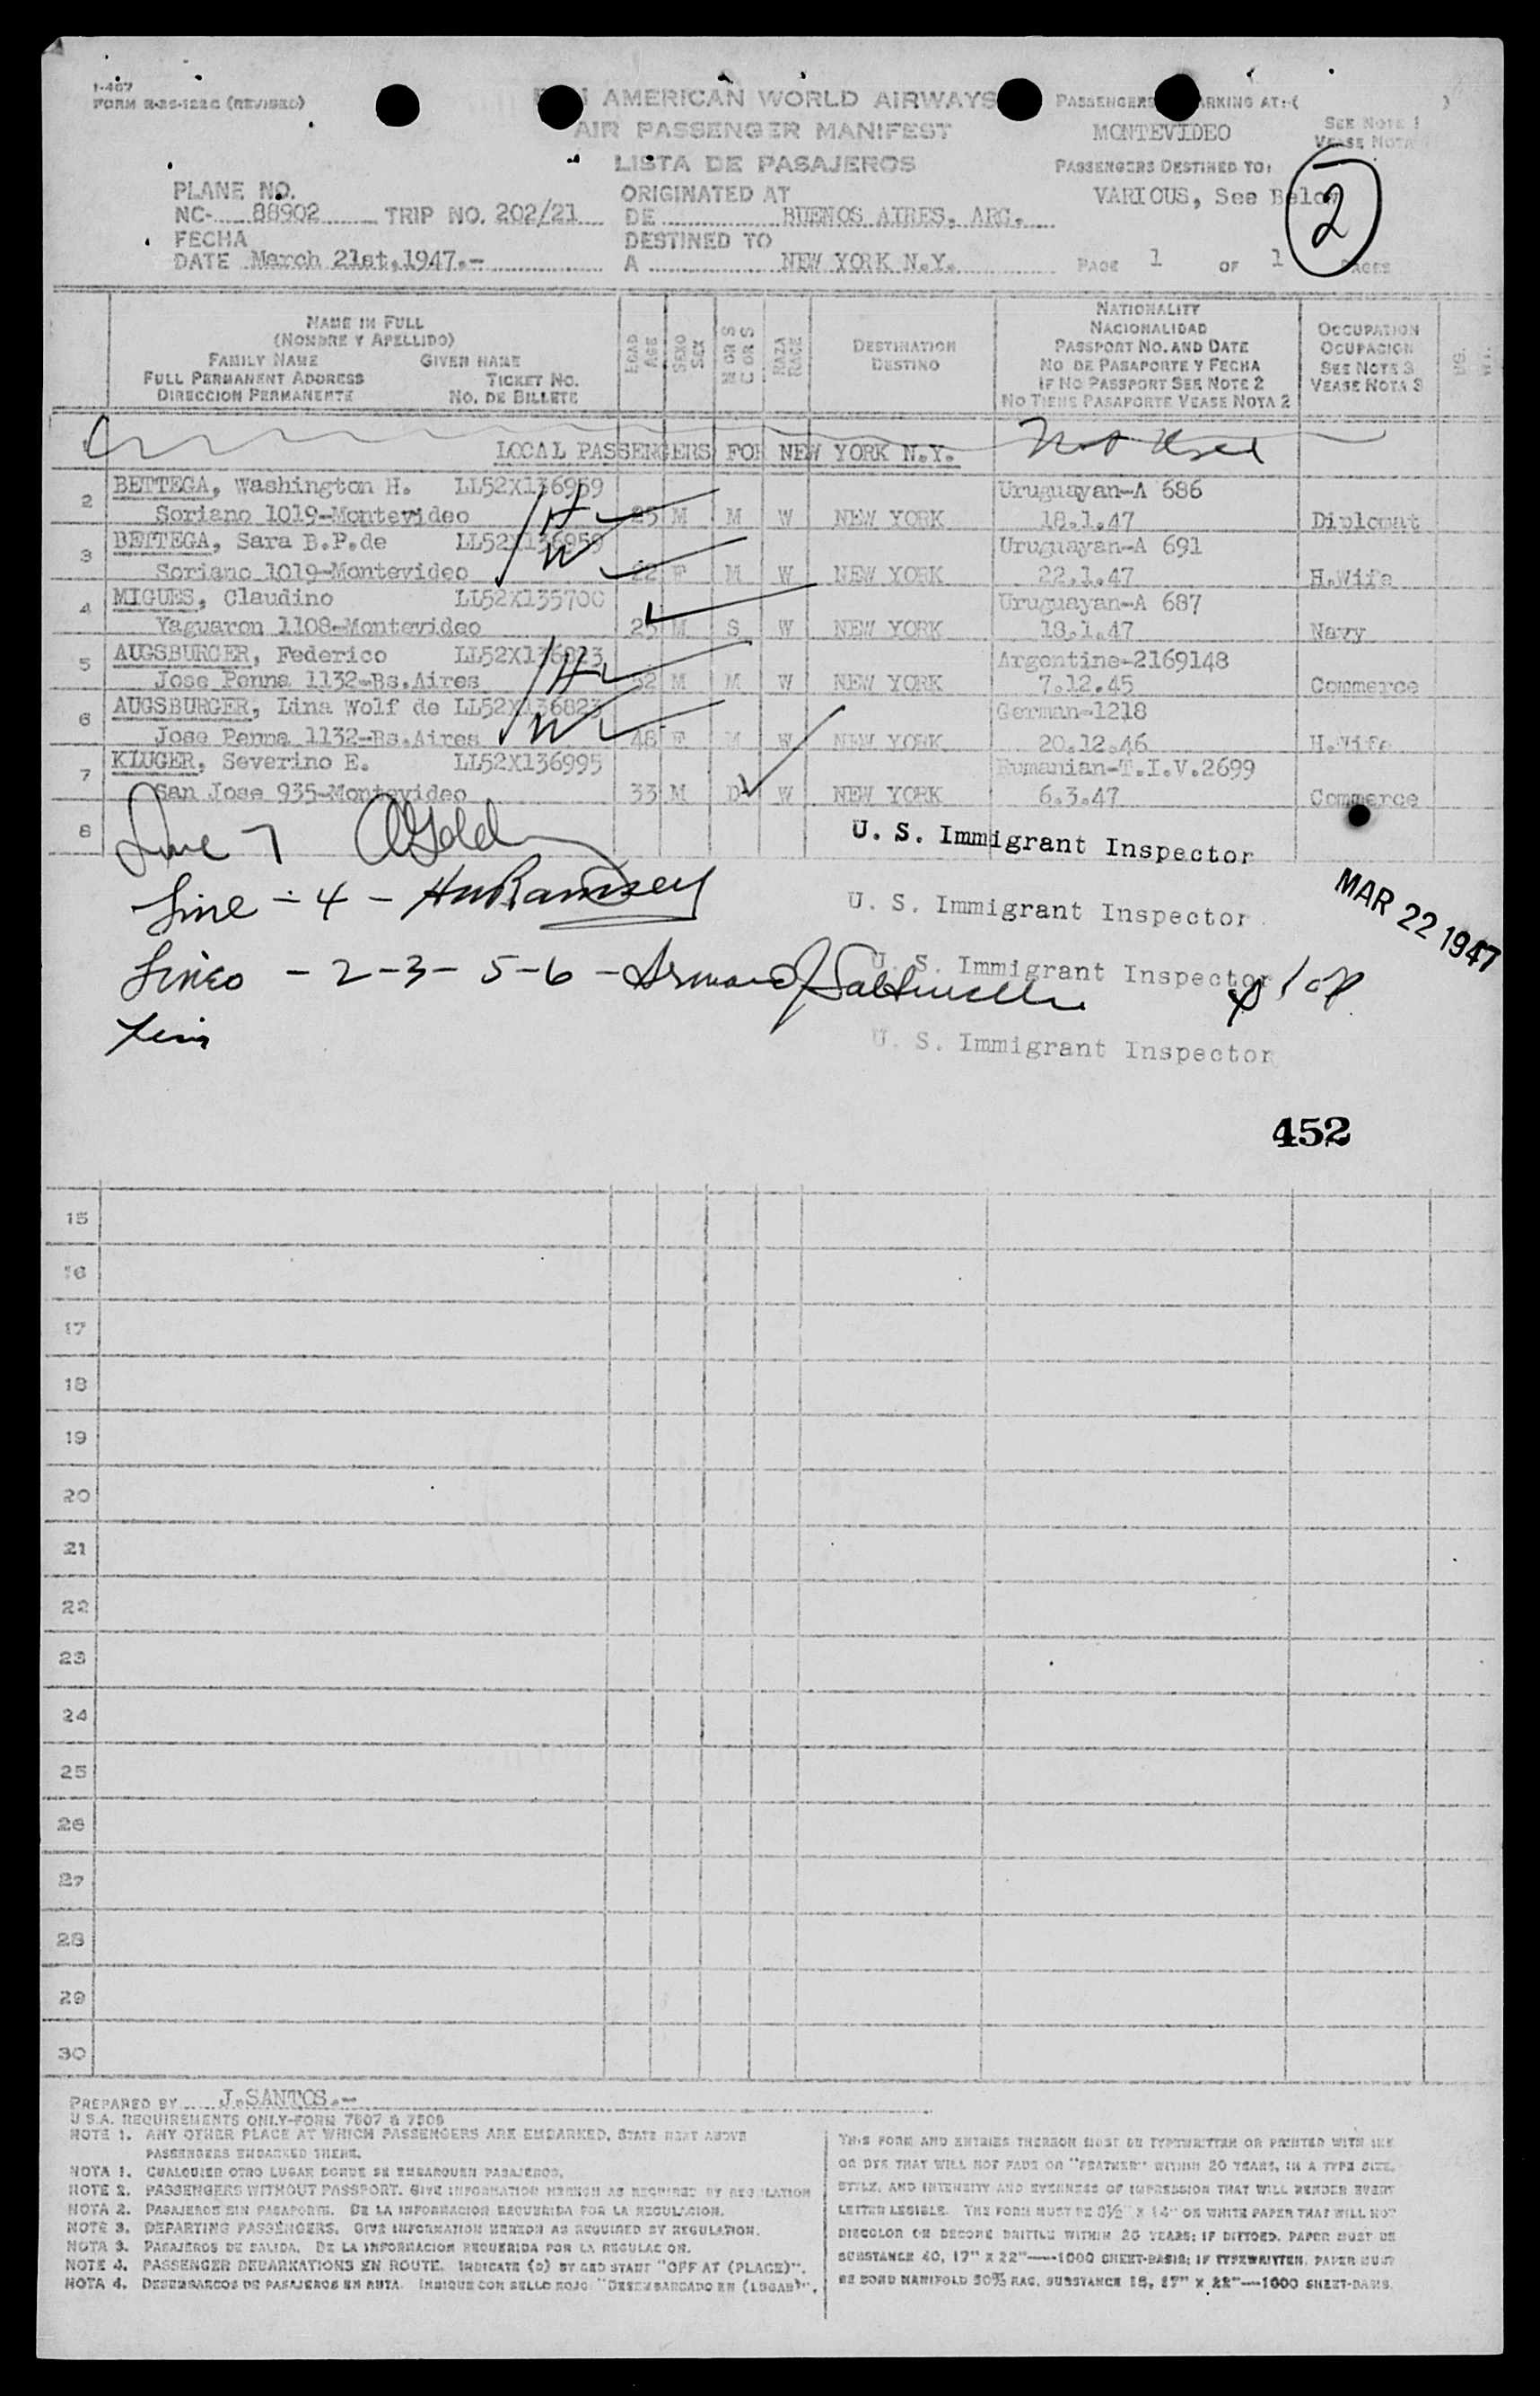 I-467
FORM R-25-122C (REVISED)
AMERICAN WORLD AIRWAYS
AIR PASSENGER MANIFEST
LISTA DE PASAJEROS
PASSENGERS ARKING AT:( )
MONTEVIDEO
SEE NOTE 1
VEASE NOTA
PASSENGERS DESTINED TO:
VARIOUS, See Below
2
PLANE NO.
NC- 88902 TRIP NO. 202/21
FECHA
DATE March 21st,1947.-
ORIGINATED AT
DE BUENOS AIRES, ARG.
DESTINED TO
A NEW YORK N.Y.
PAGE 1 OF 1 PAGES
NAME IN FULL
(NOMBRE Y APELLIDO)
FAMILY NAME GIVEN NAME
FULL PERMANENT ADDRESS TICKET NO.
DIRECCION PERMANENTE NO. DE BILLETE
EDAD AGE
SEXO SEX
M OR S
C OR S
RAZA RACE
DESTINATION
DESTINO
NATIONALITY
NACIONALIDAD
PASSPORT NO. AND DATE
NO DE PASAPORTE Y FECHA
IF NO PASSPORT SEE NOTE 2
NO TIENE PASAPORTE VEASE NOTA 2
OCCUPATION
OCUPACION
SEE NOTE 3
VEASE NOTA 3
LOCAL PASSENGERS FOR NEW YORK N.Y. Not Used
2 BETTEGA, Washington H. LL52X136959 Uruguayan-A 686
Soriano 1019-Montevideo H 25 M M W NEW YORK 18.1.47 Diplomat
3 BETTEGA, Sara B.P.de LL52X136959 Uruguayan-A 691
Soriano 1019-Montevideo W 22 F M W NEW YORK 22.1.47 H.Wife
4 MIGUES, Claudino LL52X135700 Uruguayan-A 687
Yaguaron 1108-Montevideo 25 M S W NEW YORK 18.1.47 Navy
5 AUGSBURGER, Federico LL52X136823 Argentine-2169148
Jose Penna 1132-Bs.Aires H 52 M M W NEW YORK 7.12.45 Commerce
6 AUGSBURGER, Lina Wolf de LL52X136823 German-1218
Jose Penna 1132-Bs.Aires W 48 F M W NEW YORK 20.12.46 H.Wife
7 KLUGER, Severino E. LL52X136995 Rumanian-T.I.V.2699
San Jose 935-Montevideo 33 M D W NEW YORK 6.3.47 Commerce
8
Line 7
U. S. Immigrant Inspector
Line - 4 - Ramsey
U. S. Immigrant Inspector
MAR 22 1947
Lines - 2-3-5-6 -
U. S. Immigrant Inspector
U. S. Immigrant Inspector
452
15
16
17
18
19
20
21
22
23
24
25
26
27
28
29
30
PREPARED BY J.SANTOS.-
U S.A. REQUIREMENTS ONLY-FORM 7507 & 7509
NOTE 1. ANY OTHER PLACE AT WHICH PASSENGERS ARE EMBARKED, STATE NEXT ABOVE
PASSENGERS EMBARKED THERE.
NOTA 1. CUALQUIER OTRO LUGAR DONDE SE EMBARQUEN PASAJEROS.
NOTE 2. PASSENGERS WITHOUT PASSPORT. GIVE INFORMATION HEREON AS REQUIRED BY REGULATION
NOTA 2. PASAJEROS SIN PASAPORTE. DE LA INFORMACION REQUERIDA POR LA REGULACION.
NOTE 3. DEPARTING PASSENGERS. GIVE INFORMATION HEREON AS REQUIRED BY REGULATION.
NOTA 3. PASAJEROS DE SALIDA. DE LA INFORMACION REQUERIDA POR LA REGULAC ON.
NOTE 4. PASSENGER DEBARKATIONS EN ROUTE. INDICATE (D) BY RED STAMP "OFF AT (PLACE)".
NOTA 4. DESEMBARCOS DE PASAJEROS EN RUTA. INDIQUE CON SELLO ROJO "DESEMBARCADO EN (LUGAR)".
THIS FORM AND ENTRIES THEREON MUST BE TYPEWRITTEN OR PRINTED WITH INK
OR DYE THAT WILL NOT FADE OR "FEATHER" WITHIN 20 YEARS, IN A TYPE SIZE,
STYLE, AND INTENSITY AND EVENNESS OF IMPRESSION THAT WILL RENDER EVERY
LETTER LEGIBLE. THE FORM MUST BE 8½" X 14" ON WHITE PAPER THAT WILL NOT
DISCOLOR OR BECOME BRITTLE WITHIN 20 YEARS; IF DITTOED, PAPER MUST BE
SUBSTANCE 40, 17" X 22"—1000 SHEET-BASIS; IF TYPEWRITTEN, PAPER MUST
BE BOND MANIFOLD 50% RAG, SUBSTANCE 18, 17" X 22"—1000 SHEET-BASIS.